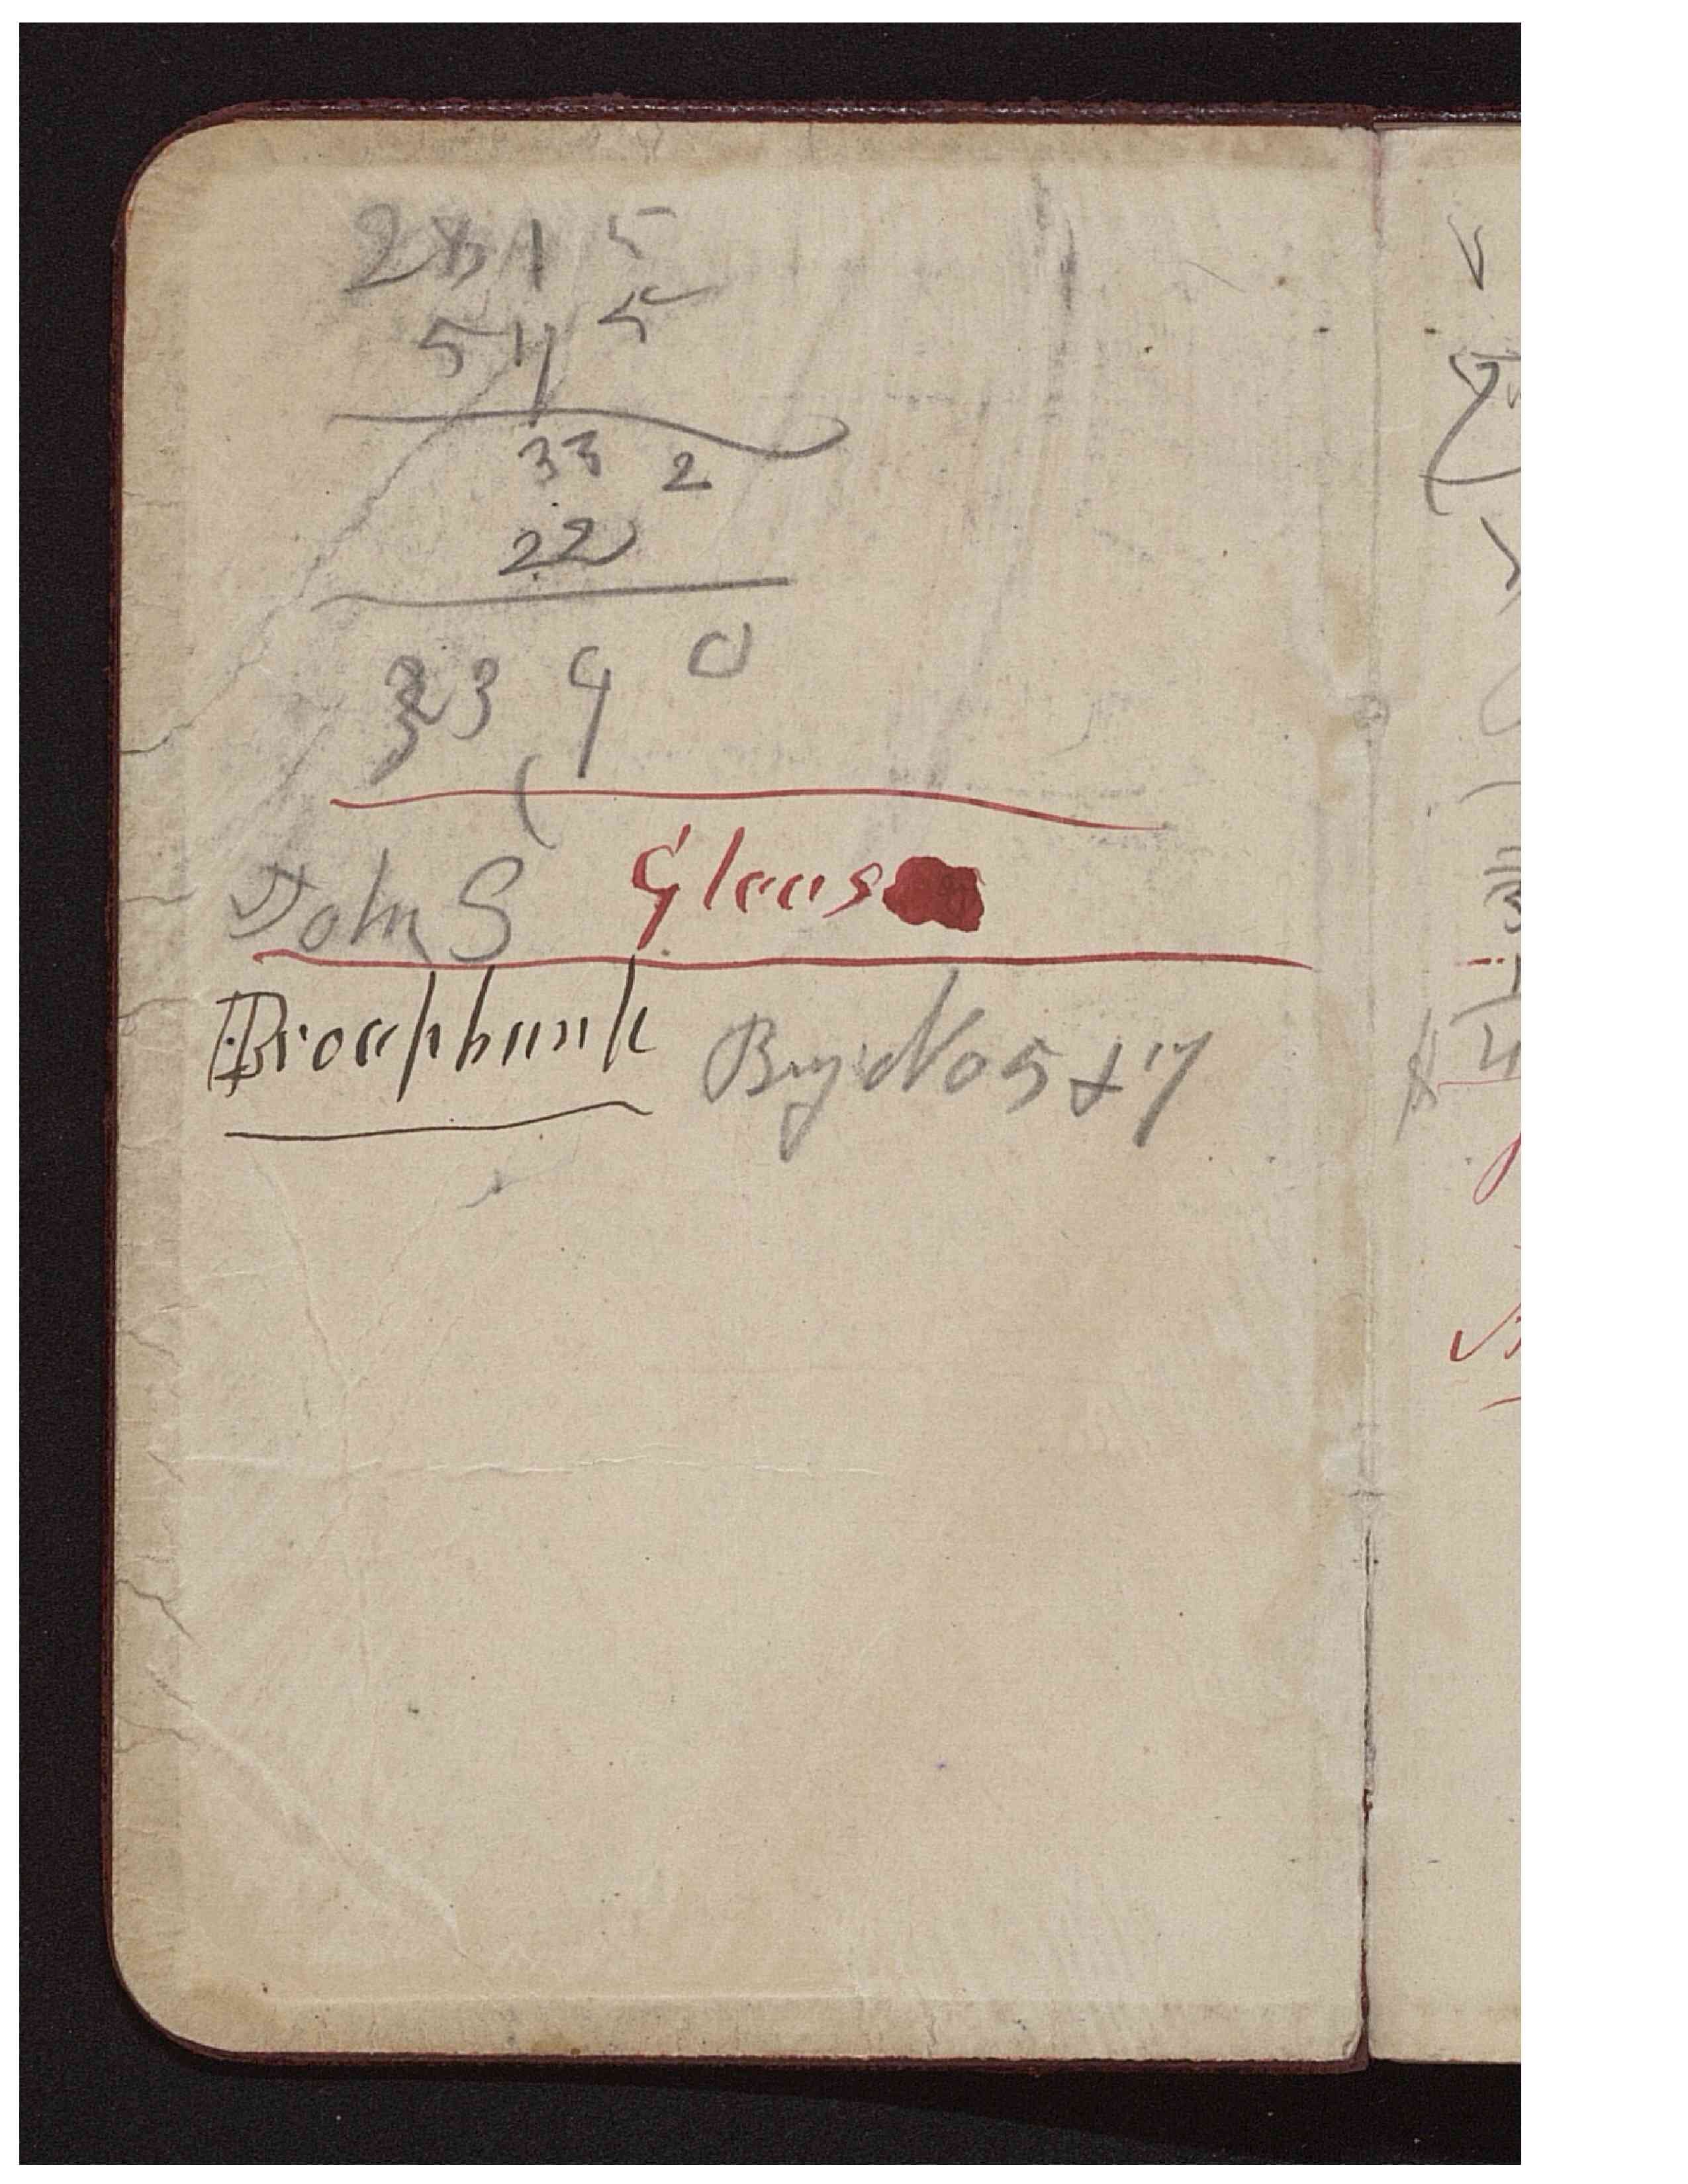 2815
545
332
22
3390
John S Gleas
Brockbunk By No 5 + 7